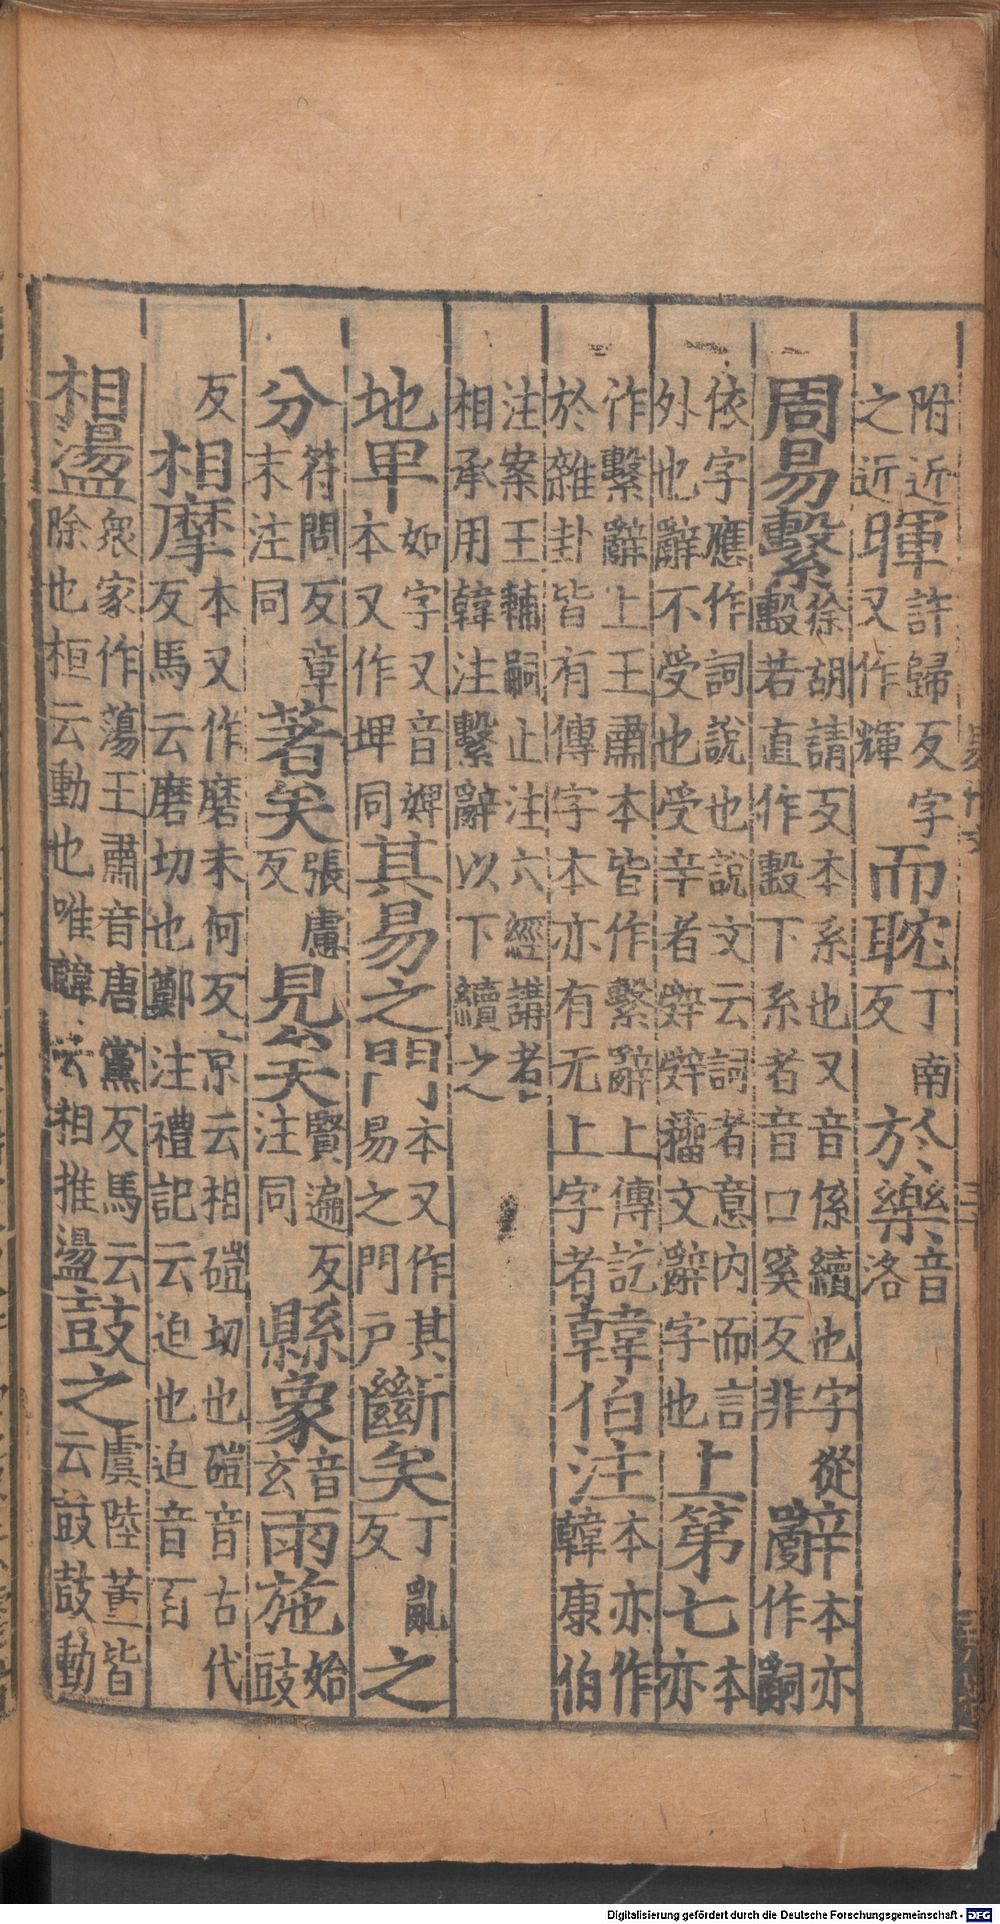 附近之近暉許歸反字又作輝而耽丁南反於樂音洛
周易繫徐胡請反本系也又音係續也字從毄若直作毄下系者音口奚反非辭本亦作嗣
依字應作詞說也說文云詞者意内而言外也辭不受也受辛者辤辤籀文辭字也上第七本亦
作繫辭上王肅本皆作繫辭上傳訖於雜卦皆有傳字本亦有无上字者韓伯注本亦作韓康伯
注案王輔嗣止注六經講者相承用韓注繫辭以下續之
地卑如字又音婢本又作埤同其易之門本又作其易之門戶斷矣丁亂反之
分符問反章末注同著矣張慮反見矣賢遍反注同縣象音玄雨施始豉
反相摩本又作磨末何反京云相磑切也磑音古代反馬云磨切也鄭注禮記云迫也迫音百
相盪衆家作蕩王肅音唐黨反馬云除也桓云動也唯韓云相推盪鼓之虞陸董皆云鼓鼓動
Digitalisierung gefördert durch die Deutsche Forschungsgemeinschaft - DFG